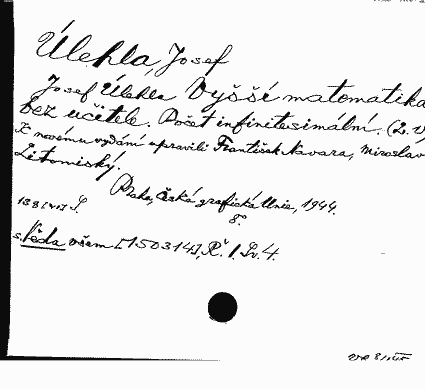 Úlehla, Josef
Josef Úlehla Vyšší matematika
bez učitele. Počet infinitesimální. (2. v
K novému vydání upravili František Navara, Miroslav
Litomiský.
Praha, Česká grafická Unie, 1944.
138 [41] S. 8°.
s. Věda všem [150314], Ř. 1. Sv. 4.